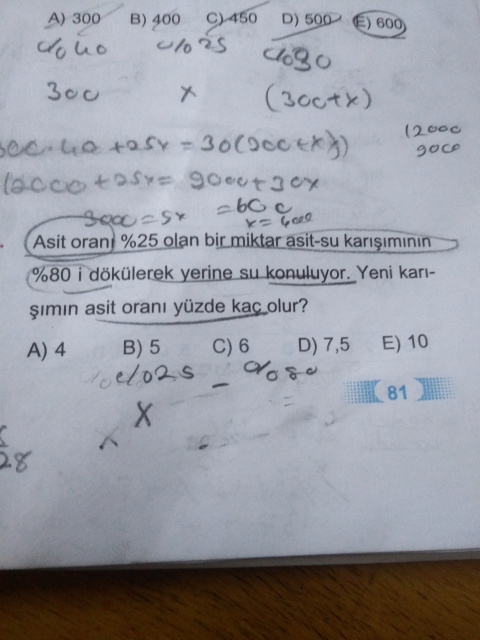 A) 300 B) 400 C) 450 D) 500 E) 600
%40 %25 %30
300 x (300+x)
300.40+25x=30(300+x)
12000
9000
12000+25x=9000+30x
3000=5x =600
Asit oranı %25 olan bir miktar asit-su karışımının
%80 i dökülerek yerine su konuluyor. Yeni karı-
şımın asit oranı yüzde kaç olur?
A) 4 B) 5 C) 6 D) 7,5 E) 10
%25 - %80
81
X
28